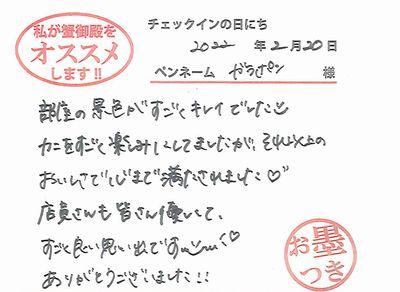 私が蟹御殿を
オススメ
します!!
チェックインの日にち
2022年2月20日
ペンネーム がらポン 様
部屋の景色がすごくキレイでした
カニをすごく楽しみにしてましたが、それ以上の
おいしさで心まで満たされました♡
店員さんも皆さん優しくて、
すごく良い思い出です♡
ありがとうございました!!
お墨
つき